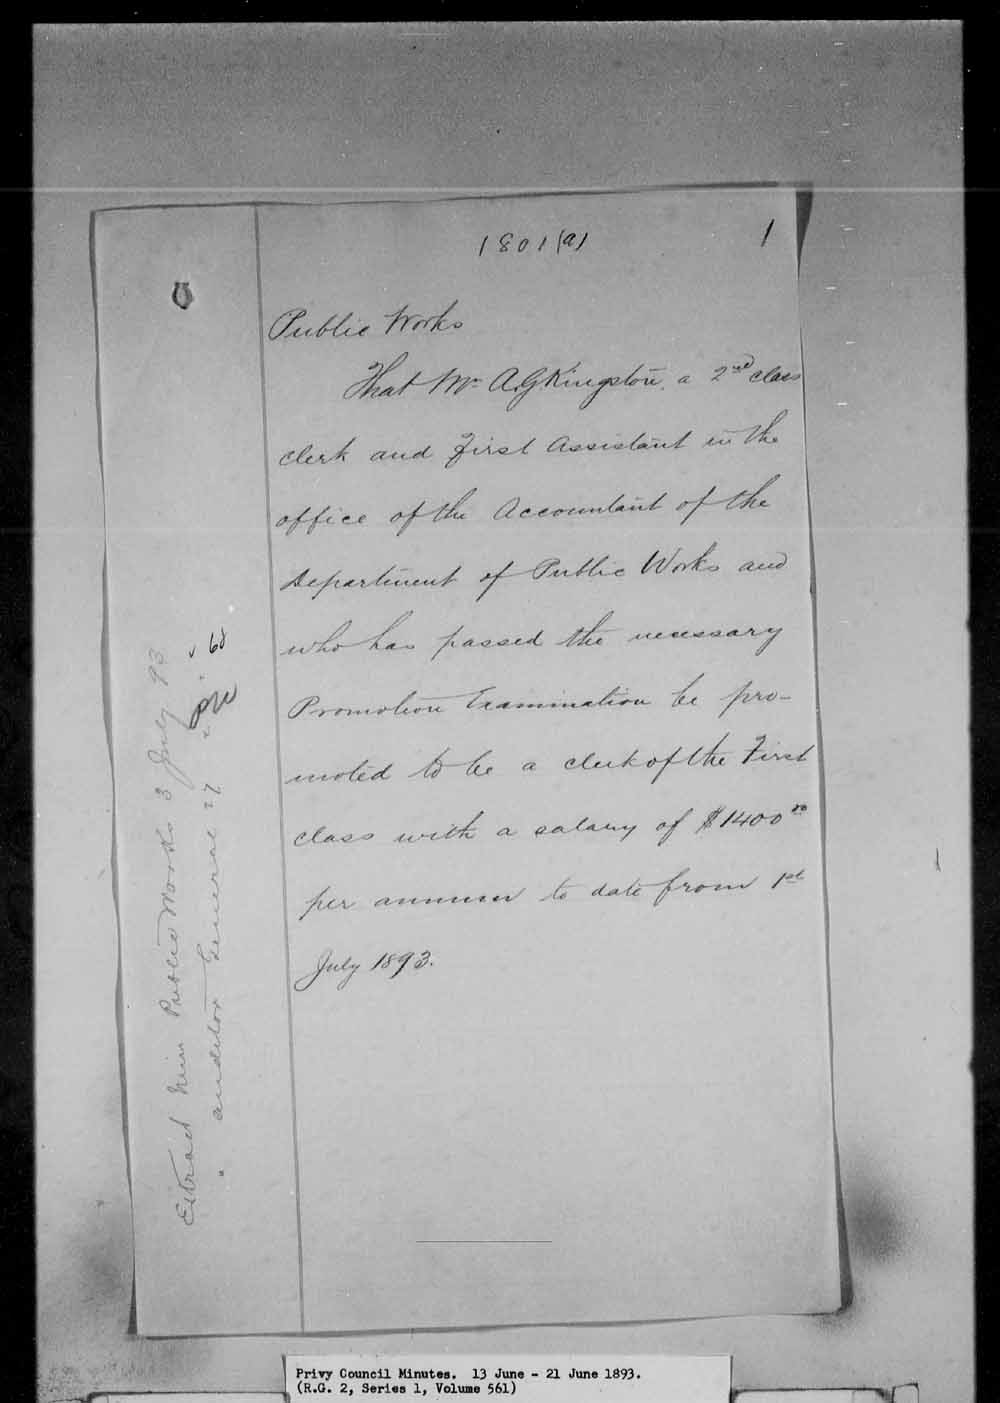 1801(a)
1
Public Works
That Mr A.G Kingston, a 2nd class
clerk and First Assistant in the
office of the Accountant of the
Department of Public Works and
who has passed the necessary
Promotion Examination be pro-
moted to be a clerk of the First
class with a salary of $1400 00
per annum to date from 1st
July 1893.
Extract Public Works 3 July 93
" Auditor General 27 " "
Privy Council Minutes. 13 June - 21 June 1893.
(R.G. 2, Series 1, Volume 561)